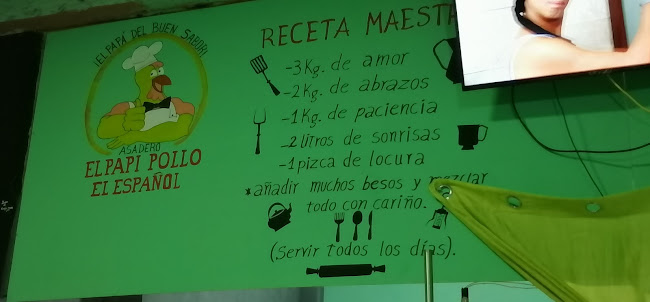 ¡EL PAPÁ DEL BUEN SABOR!
ASADERO
EL PAPI POLLO
EL ESPAÑOL
RECETA MAESTR
-3Kg. de amor
-2Kg. de abrazos
-1Kg. de paciencia
-2 litros de sonrisas
-1 pizca de locura
*añadir muchos besos y mezclar
todo con cariño.
(Servir todos los días).